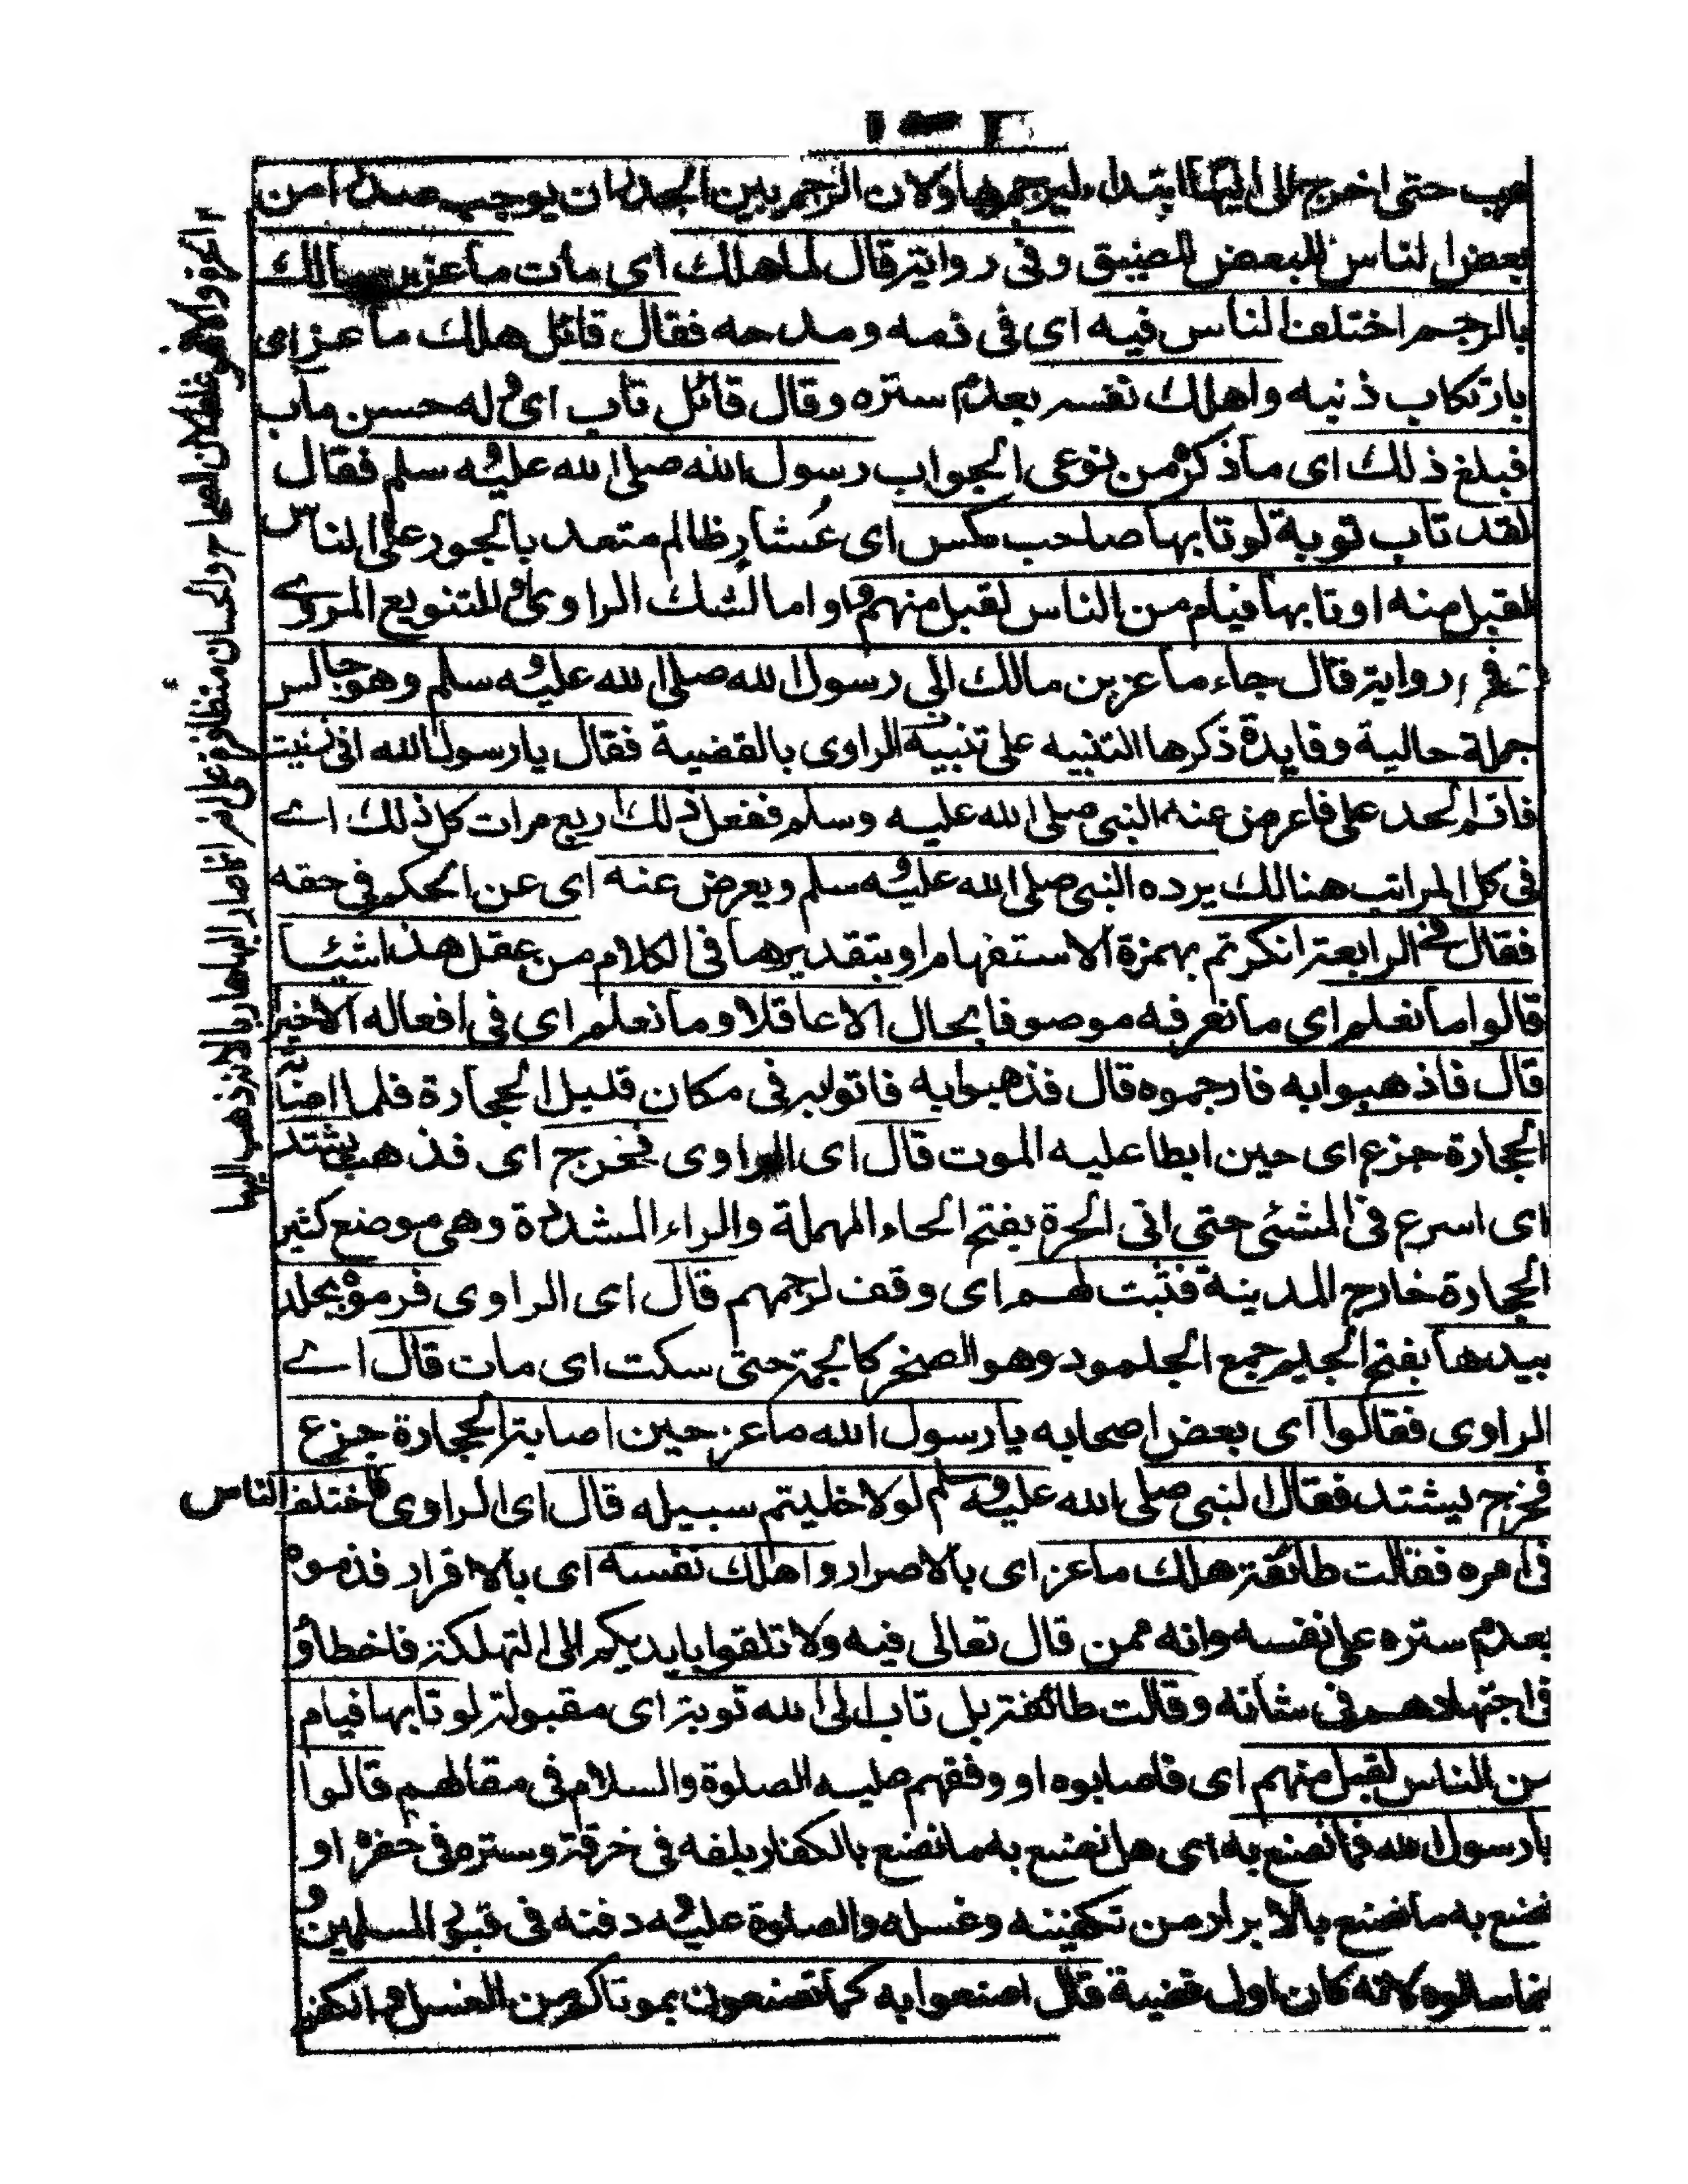 هرب حتى اخرج الى اليها ابتداء ليرجموها ولان الرجم بين الجدران يوجب صدرا من
بعض الناس للبعض للضيق وفى رواية قال لما هلك اى مات ماعز بن مالك
بالرجم اختلف الناس فيه اى فى ذمه ومدحه فقال قائل هلك ماعز اى
بارتكاب ذنبه واهلك نفسه بعدم ستره وقال قائل تاب اى وله حسن ماٰب
فبلغ ذلك اى ما ذكره من نوعى الجواب رسول الله صلى الله عليه وسلم فقال
لقد تاب توبة لو تابها صاحب مكس اى عُشار ظالم متعد بالجور على الناس
لقبل منه او تابها فيام من الناس لقبل منهم واو اما لشك الراوى او للتنويع المروے
وفى رواية قال جاء ماعز بن مالك الى رسول الله صلى الله عليه وسلم وهو جالس
جملة حالية وفايدة ذكرها التنبيه على تنبيه الراوى بالقضية فقال يا رسول الله انى زنيت
فاقم الحد على فاعرض عنه النبى صلى الله عليه وسلم ففعل ذلك اربع مرات كل ذلك اے
فى كل المراتب هنالك يرده النبى صلى الله عليه وسلم ويعرض عنه اى عن الحكم فى حقه
فقال فى الرابعة انكرتم بهمزة الاستفهام او بتقديرها فى الكلام من عقل هذا شيئا
قالوا ما نعلم اى ما نعرفه موصوفا بحال الا عاقلا وما نعلم اى فى افعاله الا خيرا
قال فاذهبوا به فارجموه قال فذهبوا به فاتوا به فى مكان قليل الحجارة فلما اصابته
الحجارة جزع اى حين ابطا عليه الموت قال اى الراوى فخرج اى فذهب يشتد
اى اسرع فى المشئى حتى اتى الحرة بفتح الحاء المهملة والراء المشددة وهى موضع كثير
الحجارة خارج المدينة فثبت لهم اى وقف لرجمهم قال اى الراوى فرموه بجلا
بيدها بفتح الجيم جمع الجلمود وهو الصخر كالجمة حتى سكت اى مات قال اے
الراوى فقالوا اى بعض اصحابه يا رسول الله ماعز حين اصابته الحجارة جزع
فخرج يشتد فقال النبى صلى الله عليه وسلم لولا خليتم سبيله قال اى الراوى فاختلف الناس
فى امره فقالت طائفة هلك ماعز اى بالاصرار واهلك نفسه اى بالاقرار فذموه
بعدم ستره على نفسه وانه ممن قال تعالى فيه ولا تلقوا بايديكم الى التهلكة فاخطاؤ
فى اجتهادهم فى شانه وقالت طائفة بل تاب الى الله توبة اى مقبولة لو تابها فيام
من الناس لقبل منهم اى فاصابوه او وفقهم عليه الصلوة والسلام فى مقالهم قالوا
يا رسول الله فما نصنع به اى هل نصنع به ما نصنع بالكفار بلفه فى خرقة وستره فى حفرة او
نصنع به ما نصنع بالابرار من تكفينه وغسله والصلوة عليه ودفنه فى قبور المسلمين و
انما سالوه لانه كان اول قضية قال اصنعوا به كما تصنعون بموتاكم من الغسل والكفن